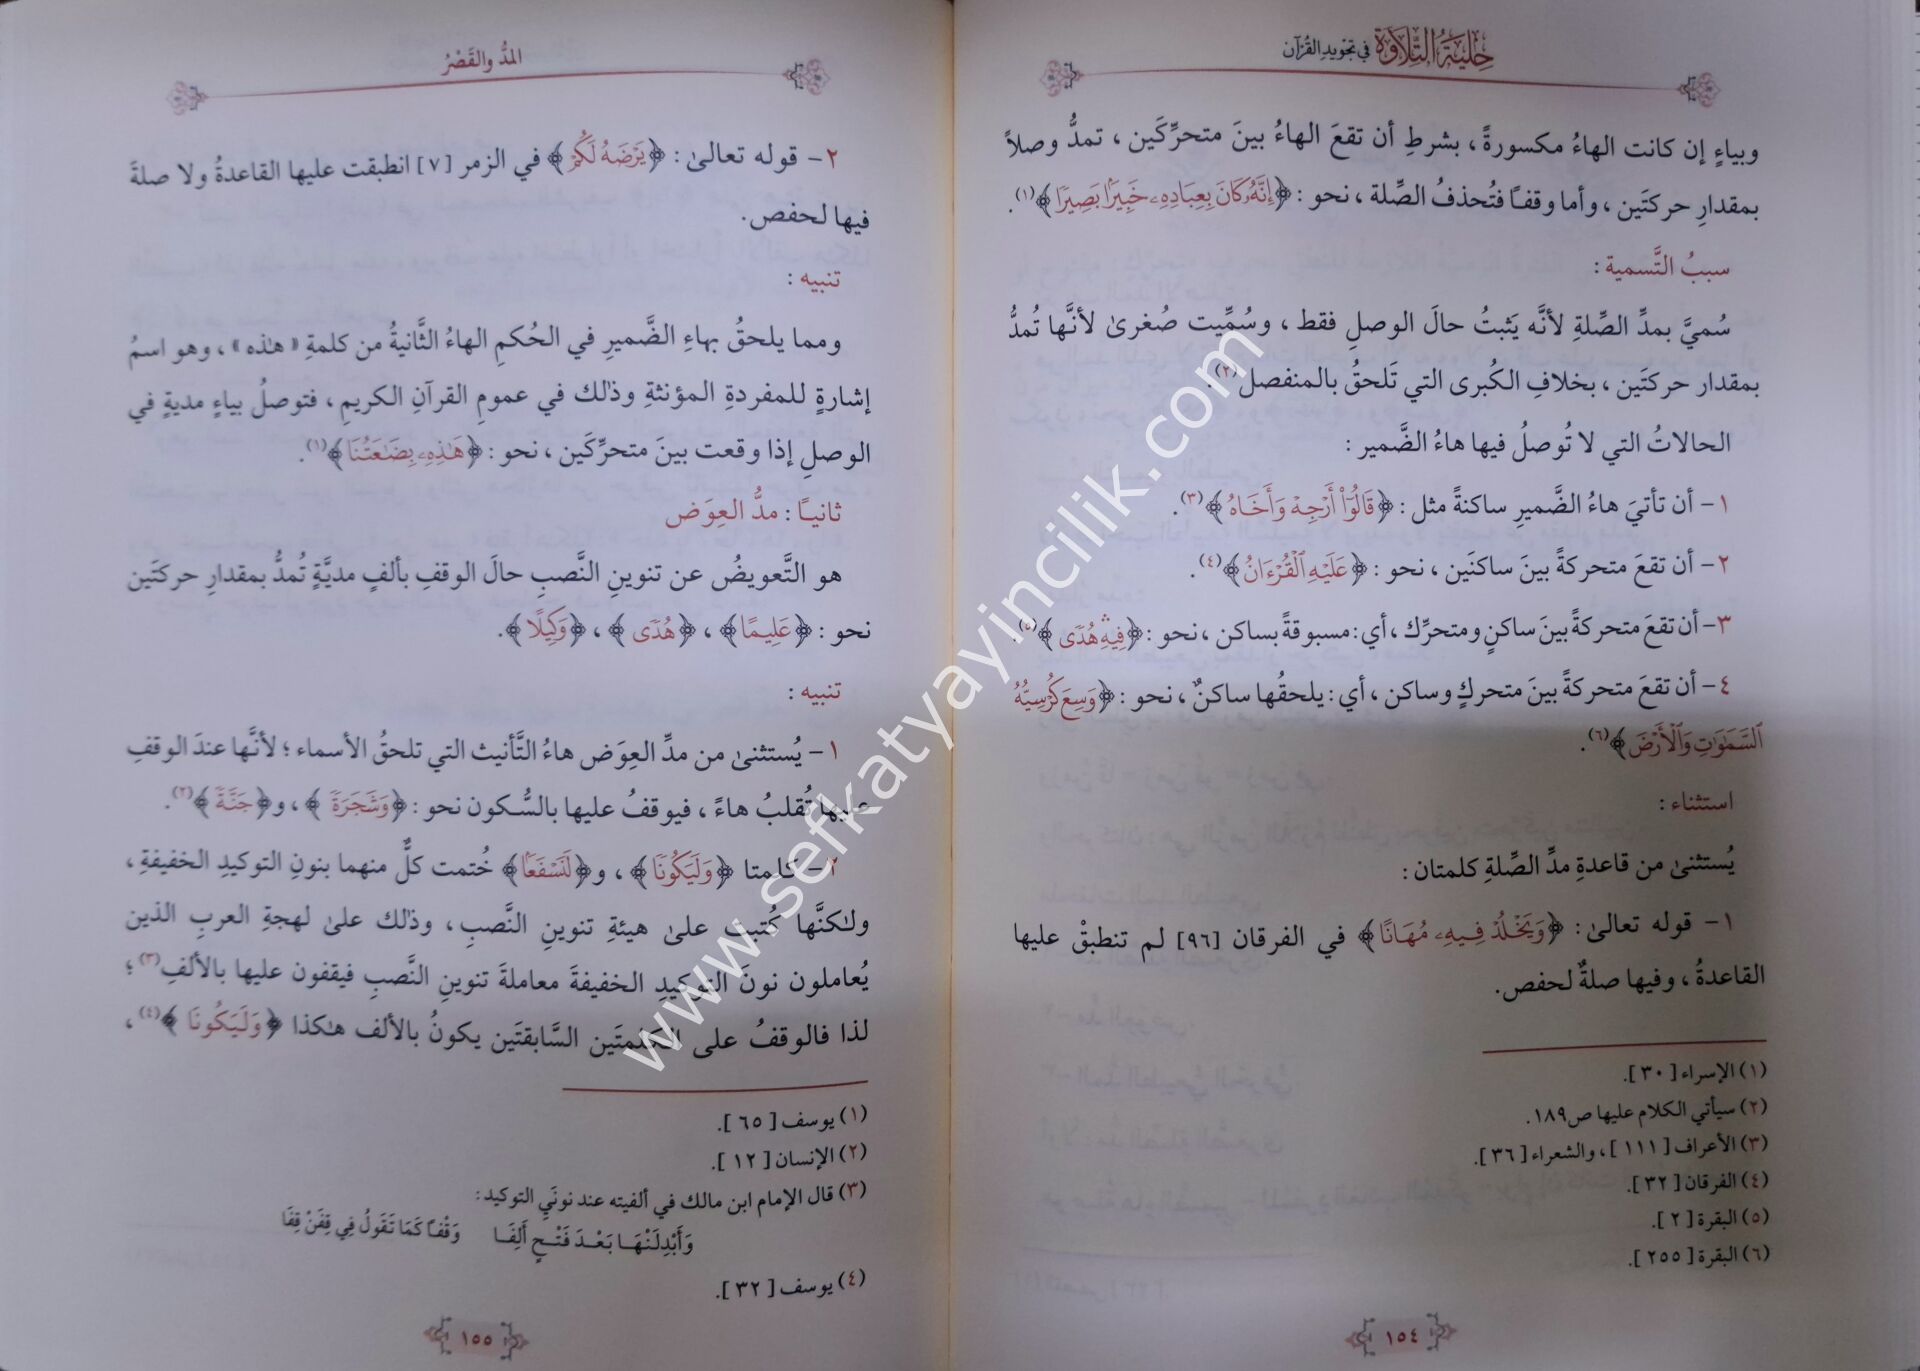 حِليَةُ التِّلَاوَة في تجويد القُرْآن
وبياءٍ إن كانت الهاءُ مكسورةً ، بشرطِ أن تقعَ الهاءُ بينَ متحرِّكَين ، تمدُّ وصلاً
بمقدارِ حركتَين ، وأما وقفًا فتُحذفُ الصِّلة ، نحو : ﴿إِنَّهُۥ كَانَ بِعِبَادِهِۦ خَبِيرًۢا بَصِيرًا﴾(١).
سببُ التَّسمية :
سُميَّ بمدِّ الصِّلةِ لأنَّه يَثبتُ حالَ الوصلِ فقط ، وسُمِّيت صُغرىٰ لأنَّها تُمدُّ
بمقدار حركتَين ، بخلافِ الكُبرى التي تَلحقُ بالمنفصل(٢).
الحالاتُ التي لا تُوصلُ فيها هاءُ الضَّمير :
١- أن تأتيَ هاءُ الضَّميرِ ساكنةً مثل : ﴿قَالُوٓا۟ أَرْجِهْ وَأَخَاهُ﴾(٣).
٢- أن تقعَ متحركةً بينَ ساكنَين ، نحو : ﴿عَلَيْهِ ٱلْقُرْءَانُ﴾(٤).
٣- أن تقعَ متحركةً بينَ ساكنٍ ومتحرِّك ، أي: مسبوقةً بساكن ، نحو : ﴿فِيهِ هُدًى﴾(٥).
٤- أن تقعَ متحركةً بينَ متحركٍ وساكن ، أي : يلحقُها ساكنٌ ، نحو : ﴿وَسِعَ كُرْسِيُّهُ
ٱلسَّمَٰوَٰتِ وَٱلْأَرْضَ﴾(٦).
استثناء :
يُستثنىٰ من قاعدةِ مدِّ الصِّلةِ كلمتان :
١- قوله تعالىٰ: ﴿وَيَخْلُدْ فِيهِۦ مُهَانًا﴾ في الفرقان [٩٦] لم تنطبقْ عليها
القاعدةُ ، وفيها صلةٌ لحفص.
(١) الإسراء [٣٠].
(٢) سيأتي الكلام عليها ص١٨٩.
(٣) الأعراف [١١١]، والشعراء [٣٦].
(٤) الفرقان [٣٢].
(٥) البقرة [٢].
(٦) البقرة [٢٥٥].
١٥٤
المدُّ والقَصْرُ
٢- قوله تعالىٰ: ﴿يَرْضَهُ لَكُمْ﴾ في الزمر [٧] انطبقت عليها القاعدةُ ولا صلةَ
فيها لحفص.
تنبيه :
ومما يلحقُ بهاءِ الضَّميرِ في الحُكمِ الهاءُ الثَّانيةُ من كلمةِ «هٰذه» ، وهو اسمُ
إشارةٍ للمفردةِ المؤنثةِ وذٰلك في عمومِ القرآنِ الكريمِ ، فتوصلُ بياءٍ مديةٍ في
الوصلِ إذا وقعت بينَ متحرِّكَين ، نحو : ﴿هَٰذِهِۦ بِضَٰعَتُنَا﴾(١).
ثانيًا : مدُّ العِوَض
هو التَّعويضُ عن تنوينِ النَّصبِ حالَ الوقفِ بألفٍ مديَّةٍ تُمدُّ بمقدارِ حركتَين
نحو : ﴿عَلِيمًا﴾ ، ﴿هُدًى﴾ ، ﴿وَكِيلًا﴾.
تنبيه :
١- يُستثنىٰ من مدِّ العِوَض هاءُ التَّأنيث التي تلحقُ الأسماء ؛ لأنَّها عندَ الوقفِ
عليها تُقلبُ هاءً ، فيوقفُ عليها بالسُّكون نحو : ﴿وَشَجَرَةً﴾ ، و﴿جَنَّةً﴾(٢).
٢- كلمتا ﴿وَلَيَكُونًا﴾ ، و﴿لَنَسْفَعًۢا﴾ خُتمت كلٌّ منهما بنونِ التوكيدِ الخفيفةِ ،
ولٰكنَّها كُتبت علىٰ هيئةِ تنوينِ النَّصبِ ، وذٰلك علىٰ لهجةِ العربِ الذين
يُعاملون نونَ التوكيدِ الخفيفةَ معاملةَ تنوينِ النَّصبِ فيقفون عليها بالألفِ(٣) ؛
لذا فالوقفُ على الكلمتَين السَّابقتَين يكونُ بالألف هٰكذا ﴿وَلَيَكُونَا﴾(٤) ،
(١) يوسف [٦٥].
(٢) الإنسان [١٢].
(٣) قال الإمام ابن مالك في ألفيته عند نونَي التوكيد :
وَأَبْدِلَنْهَا بَعْدَ فَتْحٍ أَلِفَا وَقْفًا كَمَا تَقَولُ فِي قِفَنْ قِفَا
(٤) يوسف [٣٢].
١٥٥
www.sefkatyayincilik.com